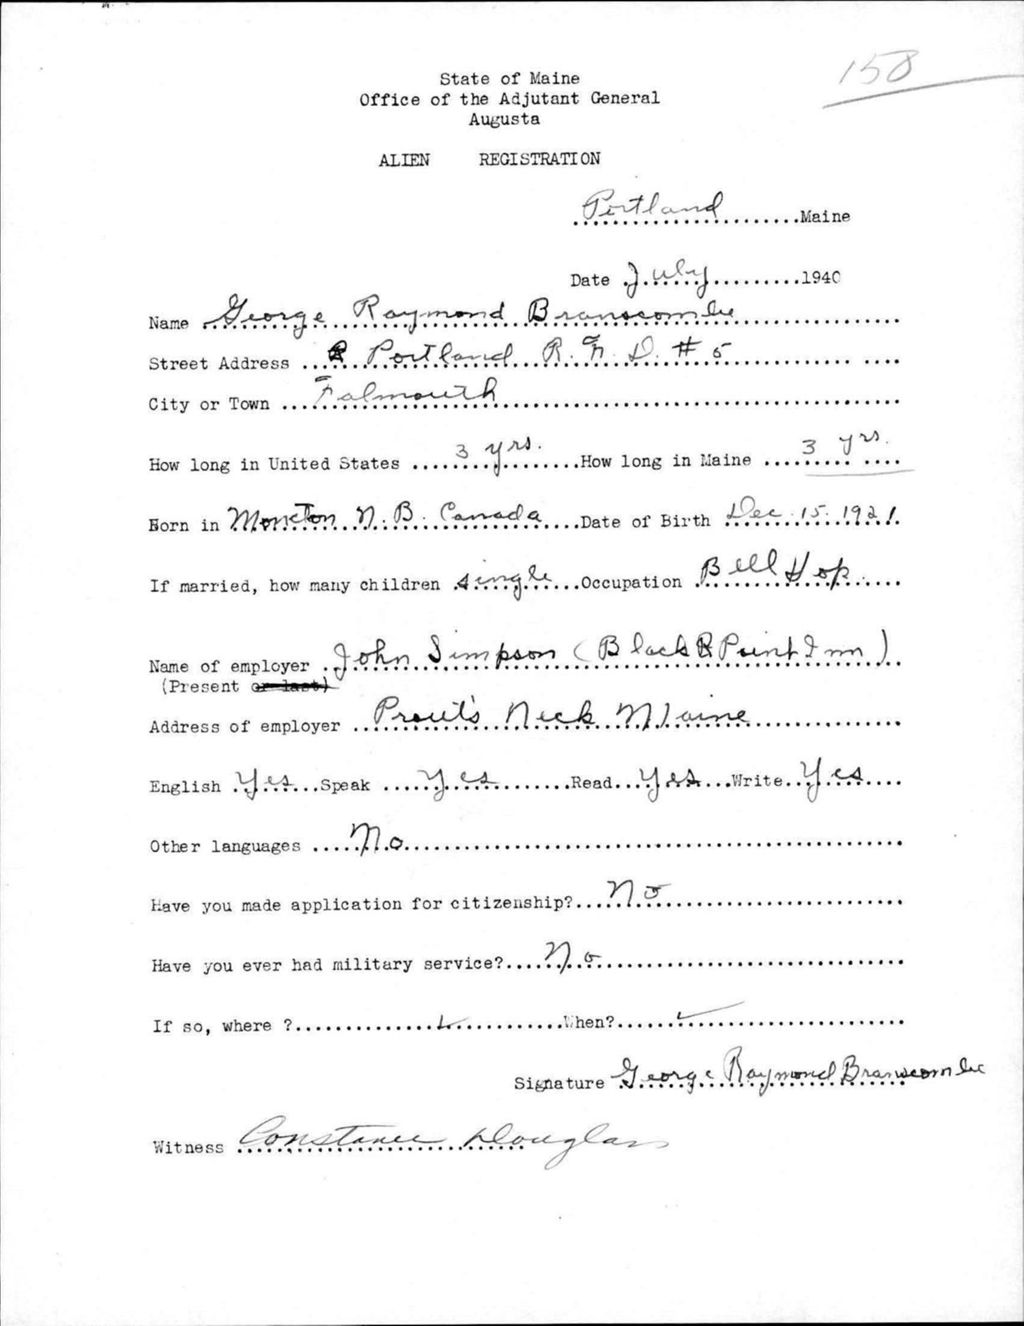 158
State of Maine
Office of the Adjutant General
Augusta
ALIEN REGISTRATION
Portland Maine
Date July 1940
Name George Raymond Branscombe
Street Address Portland R.F.D. #5
City or Town Falmouth
How long in United States 3 yrs. How long in Maine 3 yrs.
Born in Moncton N.B. Canada Date of Birth Dec. 15. 1921.
If married, how many children single Occupation Bell Hop
Name of employer John Simpson (Black Point Inn)
(Present or last)
Address of employer Prout's Neck Maine
English Yes Speak Yes Read Yes Write Yes
Other languages No
Have you made application for citizenship? No
Have you ever had military service? No
If so, where ? When?
Signature George Raymond Branscombe
Witness Constance Douglass